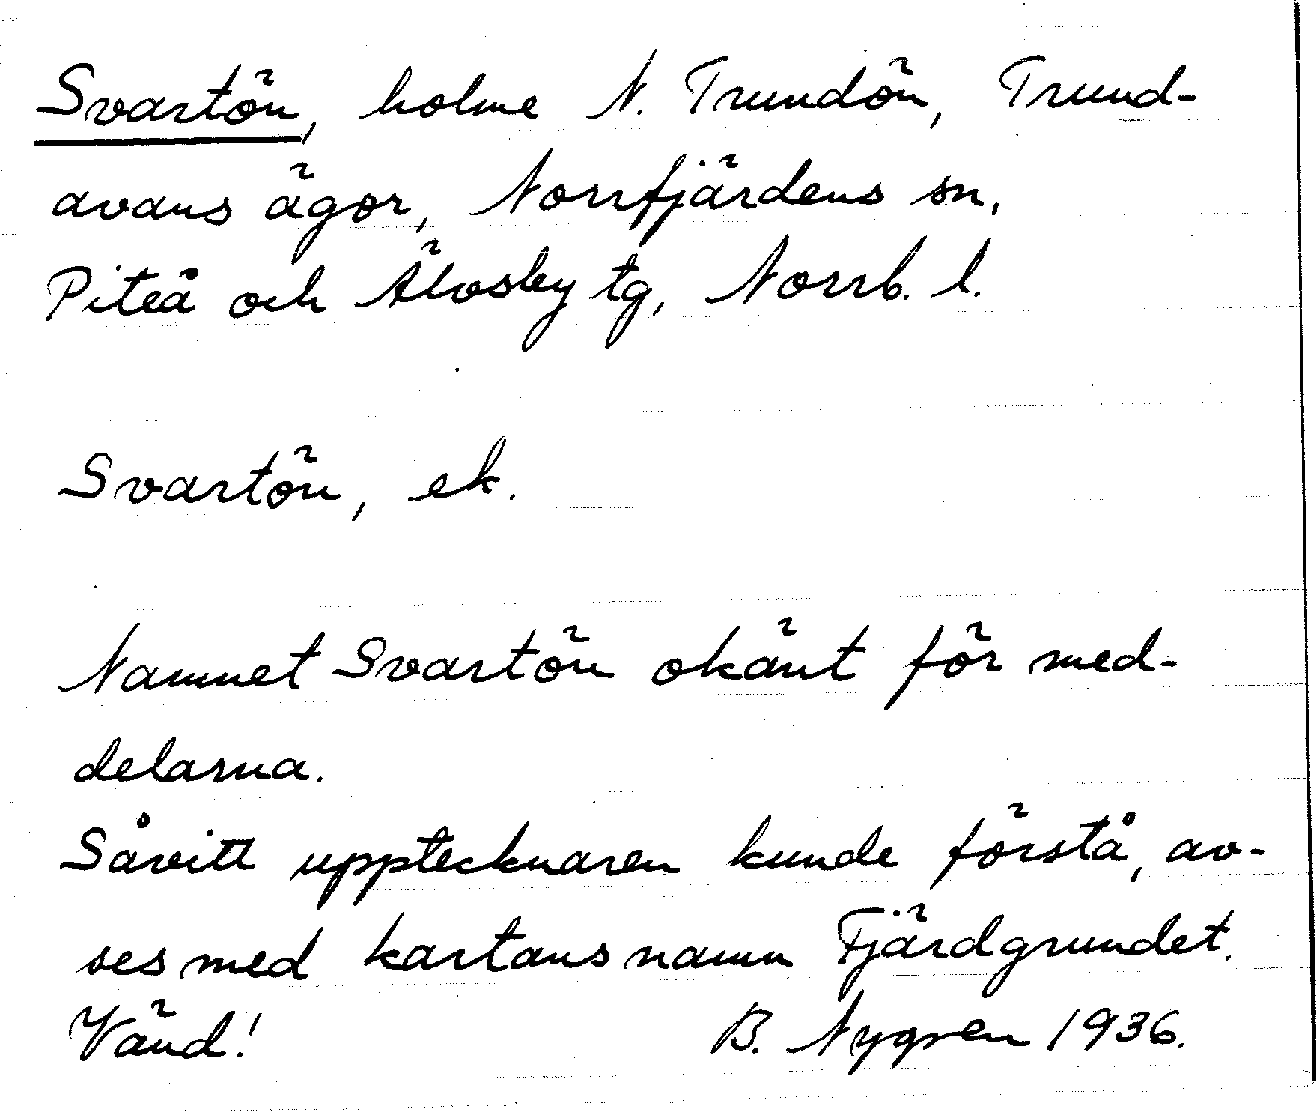 Svartön, holme N. Trundön, Trund-
avans ägor, Norrfjärdens sn,
Piteå och Älvsby tg, Norrb. l.
Svartön, ek.
Namnet Svartön okänt för med-
delarna.
Såvitt upptecknaren kunde förstå, av-
ses med kartans namn Fjärdgrundet.
Vänd! B. Nygren 1936.